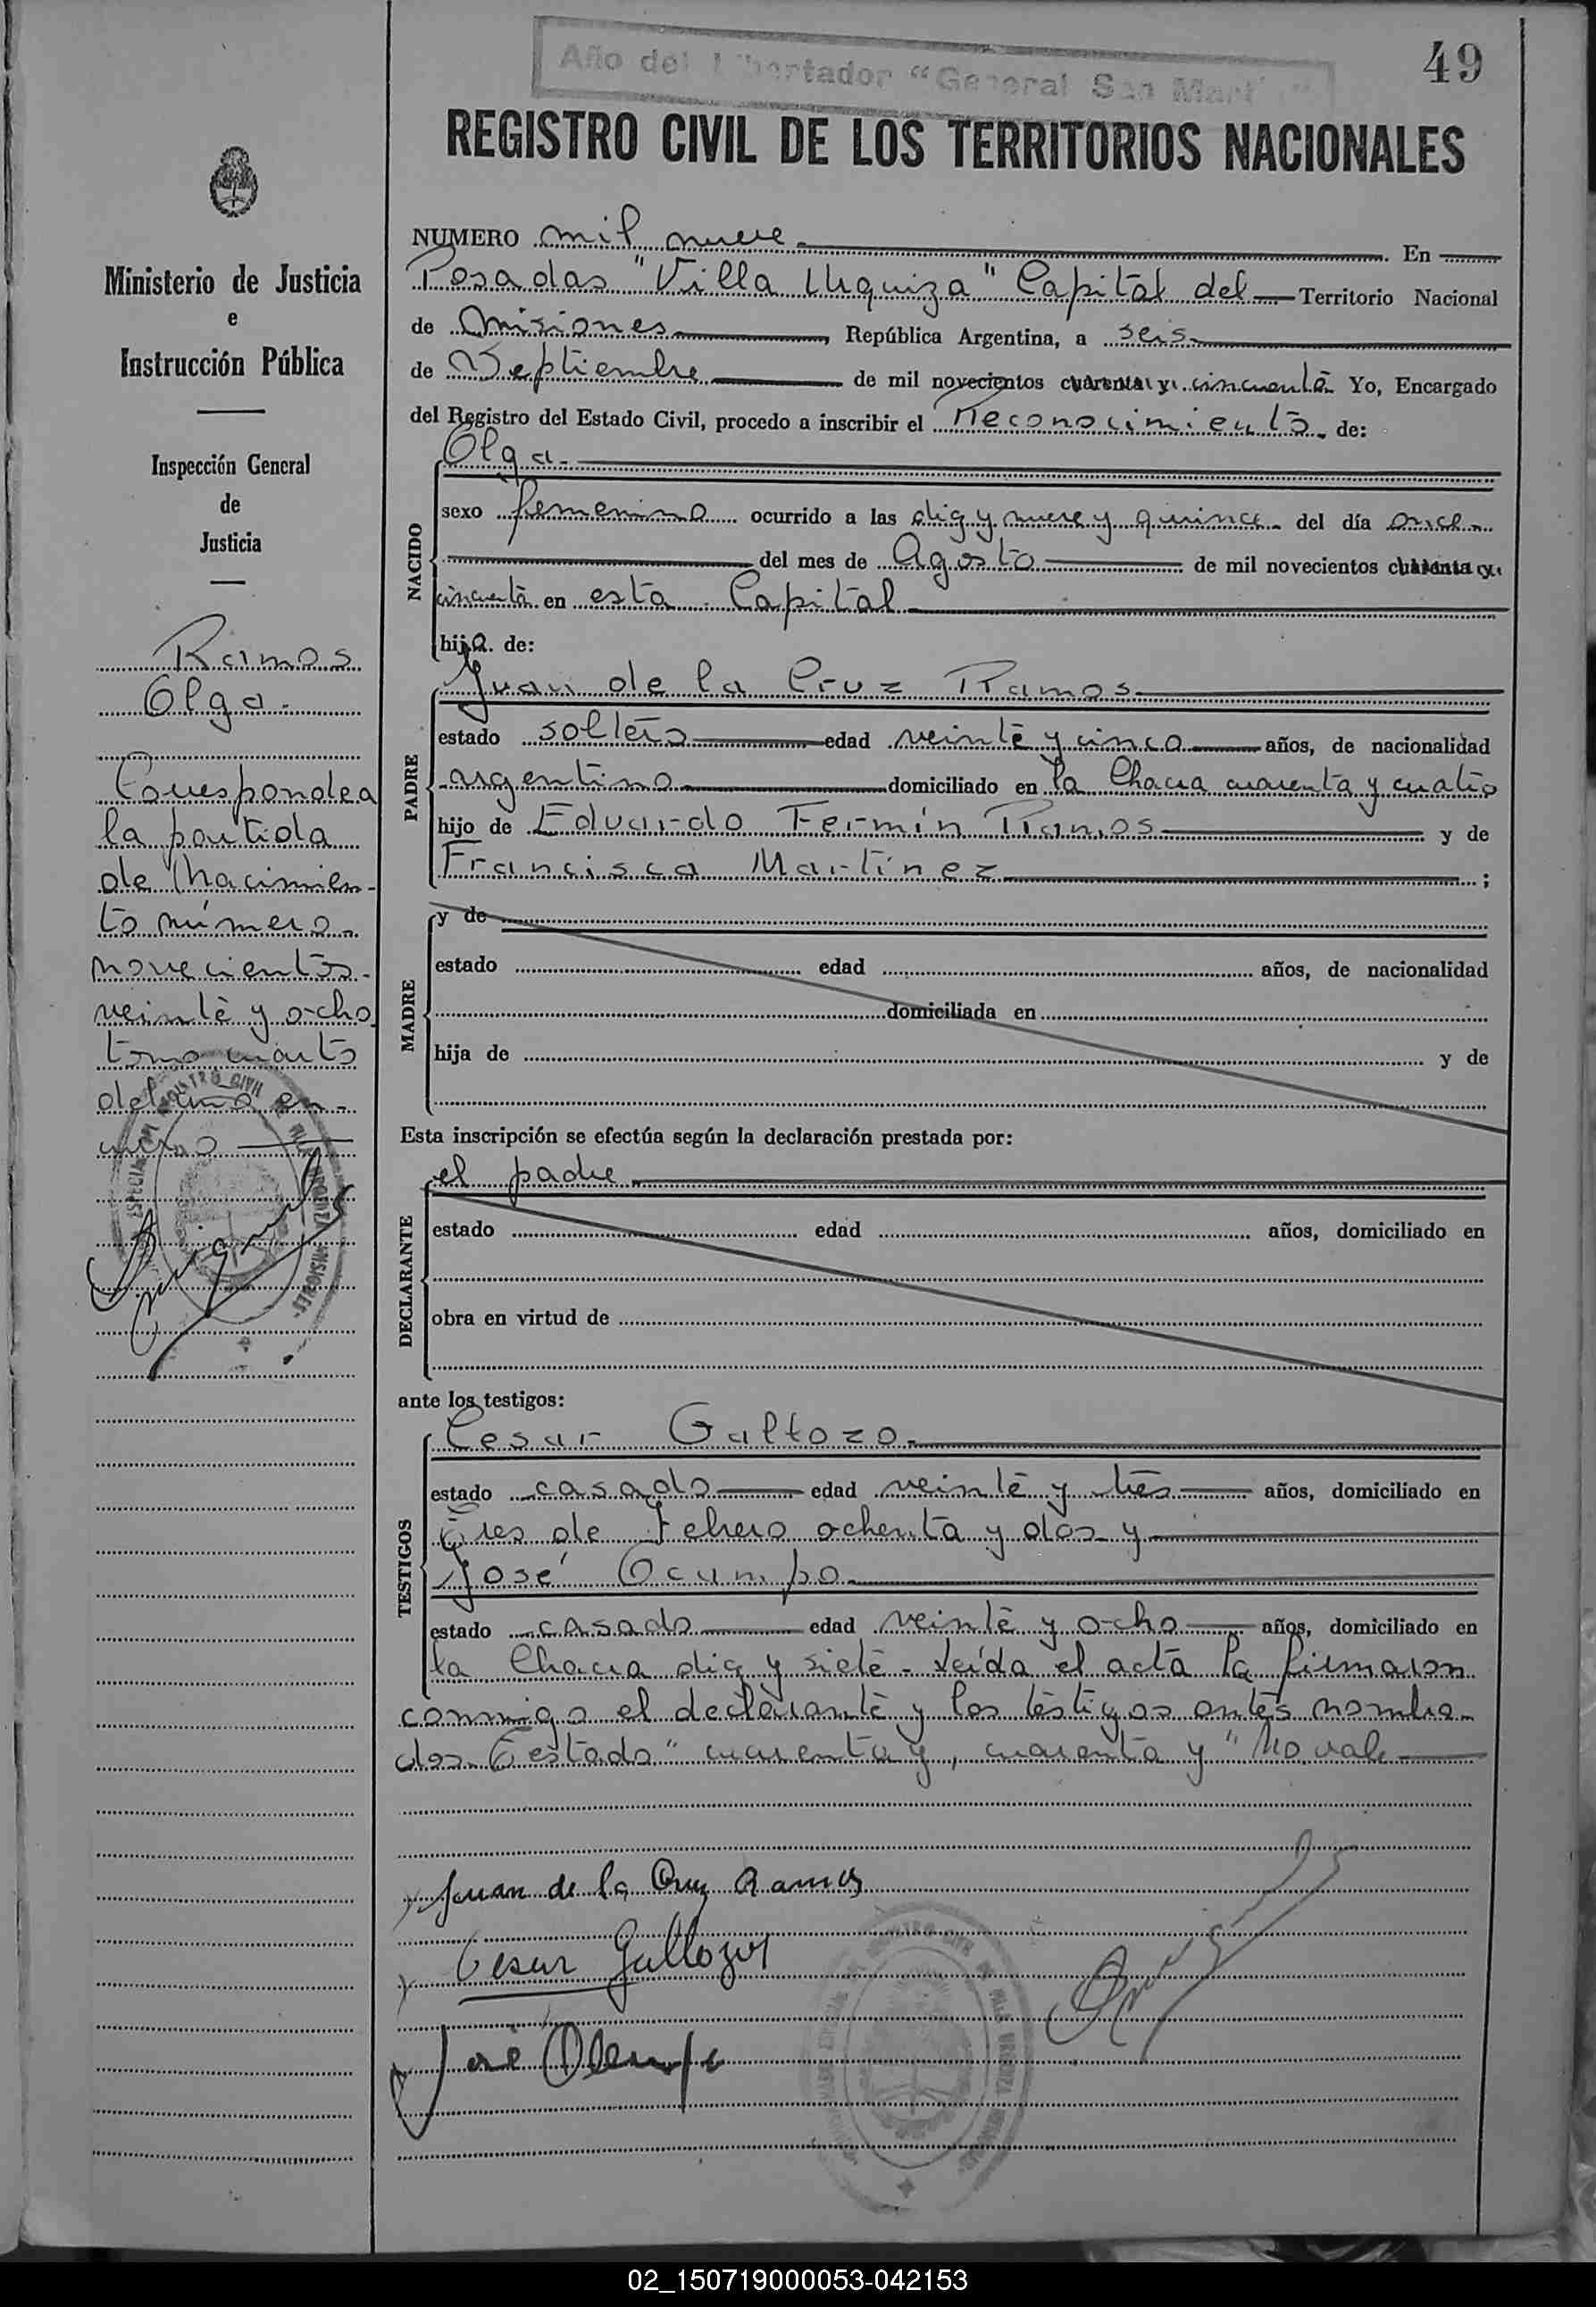 Año del Libertador "General San Martín"
49
REGISTRO CIVIL DE LOS TERRITORIOS NACIONALES
Ministerio de Justicia
e
Instrucción Pública
Inspección General
de
Justicia
Ramos
Olga.
Corresponde a
la partida
de Nacimien-
to número
novecientos
veinte y ocho
tomo cuarto
del año en
curso
NUMERO mil nueve. En
Posadas "Villa Urquiza" Capital del Territorio Nacional
de Misiones, República Argentina, a seis
de Septiembre de mil novecientos cuarenta y cincuenta Yo, Encargado
del Registro del Estado Civil, procedo a inscribir el Reconocimiento de:
NACIDO
Olga.
sexo femenino ocurrido a las diez y nueve y quince del día once
del mes de Agosto de mil novecientos cuarenta y
cincuenta en esta Capital
hija de:
PADRE
Juan de la Cruz Ramos
estado soltero edad veinte y cinco años, de nacionalidad
argentino domiciliado en la Chacra cuarenta y cuatro
hijo de Eduardo Fermín Ramos y de
Francisca Martínez ;
MADRE
y de
estado edad años, de nacionalidad
domiciliada en
hija de y de
Esta inscripción se efectúa según la declaración prestada por:
DECLARANTE
el padre
estado edad años, domiciliado en
obra en virtud de
ante los testigos:
TESTIGOS
Cesar Gallozo
estado casado edad veinte y tres años, domiciliado en
Tres de Febrero ochenta y dos y
José Ocampo
estado casado edad veinte y ocho años, domiciliado en
la Chacra diez y siete - Leída el acta la firmaron
conmigo el declarante y los testigos antes nombra-
dos - Testado "cuarenta y, cuarenta y" No vale
Juan de la Cruz Ramos
Cesar Gallozo
José Ocampo
02_150719000053-042153